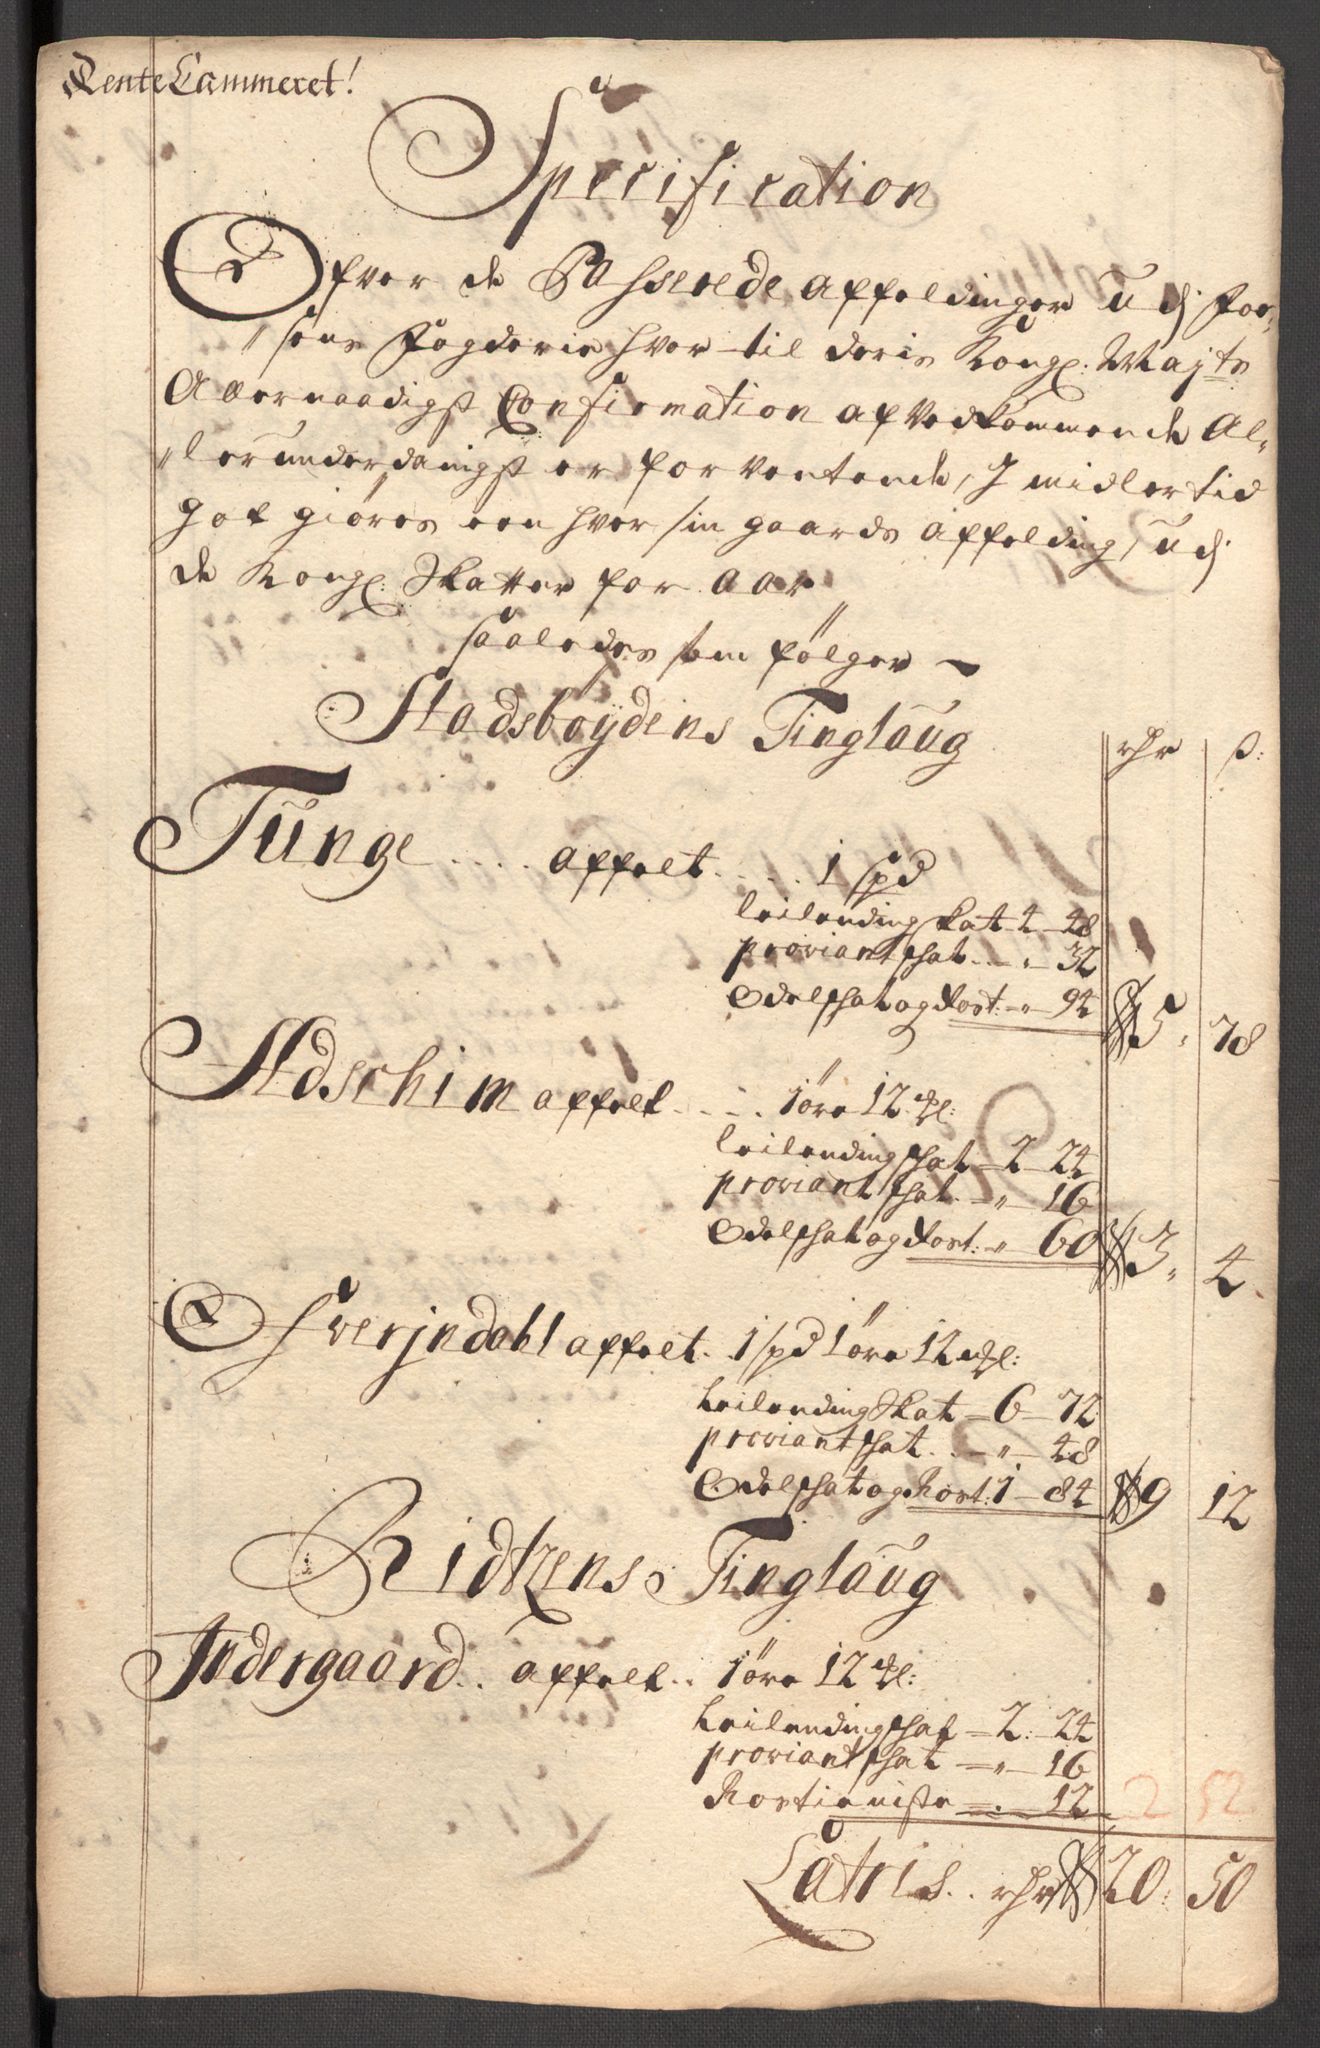 RenteCammeret!
Specification
Ofver de Passerede affeldinger udj Foe„
„sens Fogderie hvor til deris Kongl: Mayts
Allernaadigst Confirmation af vedkommende Al„
„lerunderdanigst er forventende, J midlertid
giøres een hver sin gaards affelding, udj
de Kongl: Skatter for Aar
saaledes som følger
Stadsboÿdens Tinglaug
rdr ß:
Tunge .... affelt .... 1 spd
leilending skat 4 - 48
proviant skat .. „ - 32
Odelskat og Rost: „ - 94 5 „ 78
Stadschim affelt .... 1 øre 12 ml:
leilending skat - 2 - 24
proviant skat. - „ - 16
Odelskat og Rost: - „ - 60 3 „ 4
Sverjndahl affelt .. 1 spd 1 øre 12 ml:
Leilending Skat - 6 - 72
proviant skat .. - „ - 48
Odelskat og Rost: 1 - 84 9 12
Ridtzens Tinglaug
Indergaard .. affelt .. 1 øre 12 ml:
Leilending skat - 2: - 24
proviant skat - „ - 16
Rostieniste - . 12 2 52
Latris .. rdr 20: 50